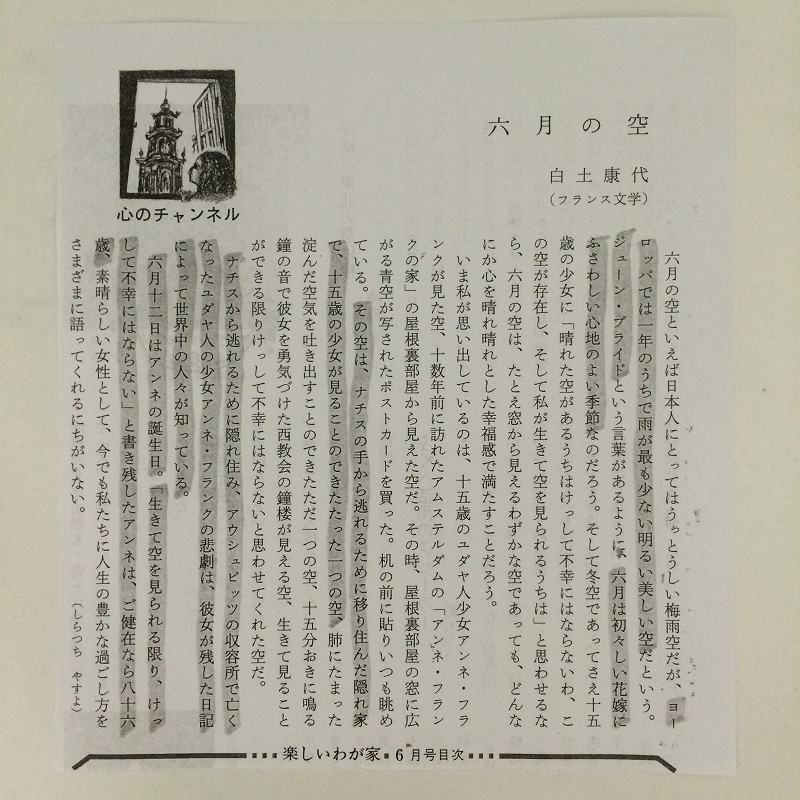 六月の空
白土康代
（フランス文学）
心のチャンネル
六月の空といえば日本人にとってはうっとうしい梅雨空だが、ヨー
ロッパでは一年のうちで雨が最も少ない明るい美しい空だという。
ジューン・ブライドという言葉があるように、六月は初々しい花嫁に
ふさわしい心地のよい季節なのだろう。そして冬空であってさえ十五
歳の少女に「晴れた空があるうちはけっして不幸にはならないわ、こ
の空が存在し、そして私が生きて空を見られるうちは」と思わせるな
ら、六月の空は、たとえ窓から見えるわずかな空であっても、どんな
にか心を晴れ晴れとした幸福感で満たすことだろう。
いま私が思い出しているのは、十五歳のユダヤ人少女アンネ・フラ
ンクが見た空、十数年前に訪れたアムステルダムの「アンネ・フラン
クの家」の屋根裏部屋から見えた空だ。その時、屋根裏部屋の窓に広
がる青空が写されたポストカードを買った。机の前に貼りいつも眺め
ている。その空は、ナチスの手から逃れるために移り住んだ隠れ家
で、十五歳の少女が見ることのできたたった一つの空、肺にたまった
淀んだ空気を吐き出すことのできたただ一つの空、十五分おきに鳴る
鐘の音で彼女を勇気づけた西教会の鐘楼が見える空、生きて見ること
ができる限りけっして不幸にはならないと思わせてくれた空だ。
ナチスから逃れるために隠れ住み、アウシュビッツの収容所で亡く
なったユダヤ人の少女アンネ・フランクの悲劇は、彼女が残した日記
によって世界中の人々が知っている。
六月十二日はアンネの誕生日。「生きて空を見られる限り、けっ
して不幸にはならない」と書き残したアンネは、ご健在なら八十六
歳、素晴らしい女性として、今でも私たちに人生の豊かな過ごし方を
さまざまに語ってくれるにちがいない。
（しらつち やすよ）
楽しいわが家 6月号目次